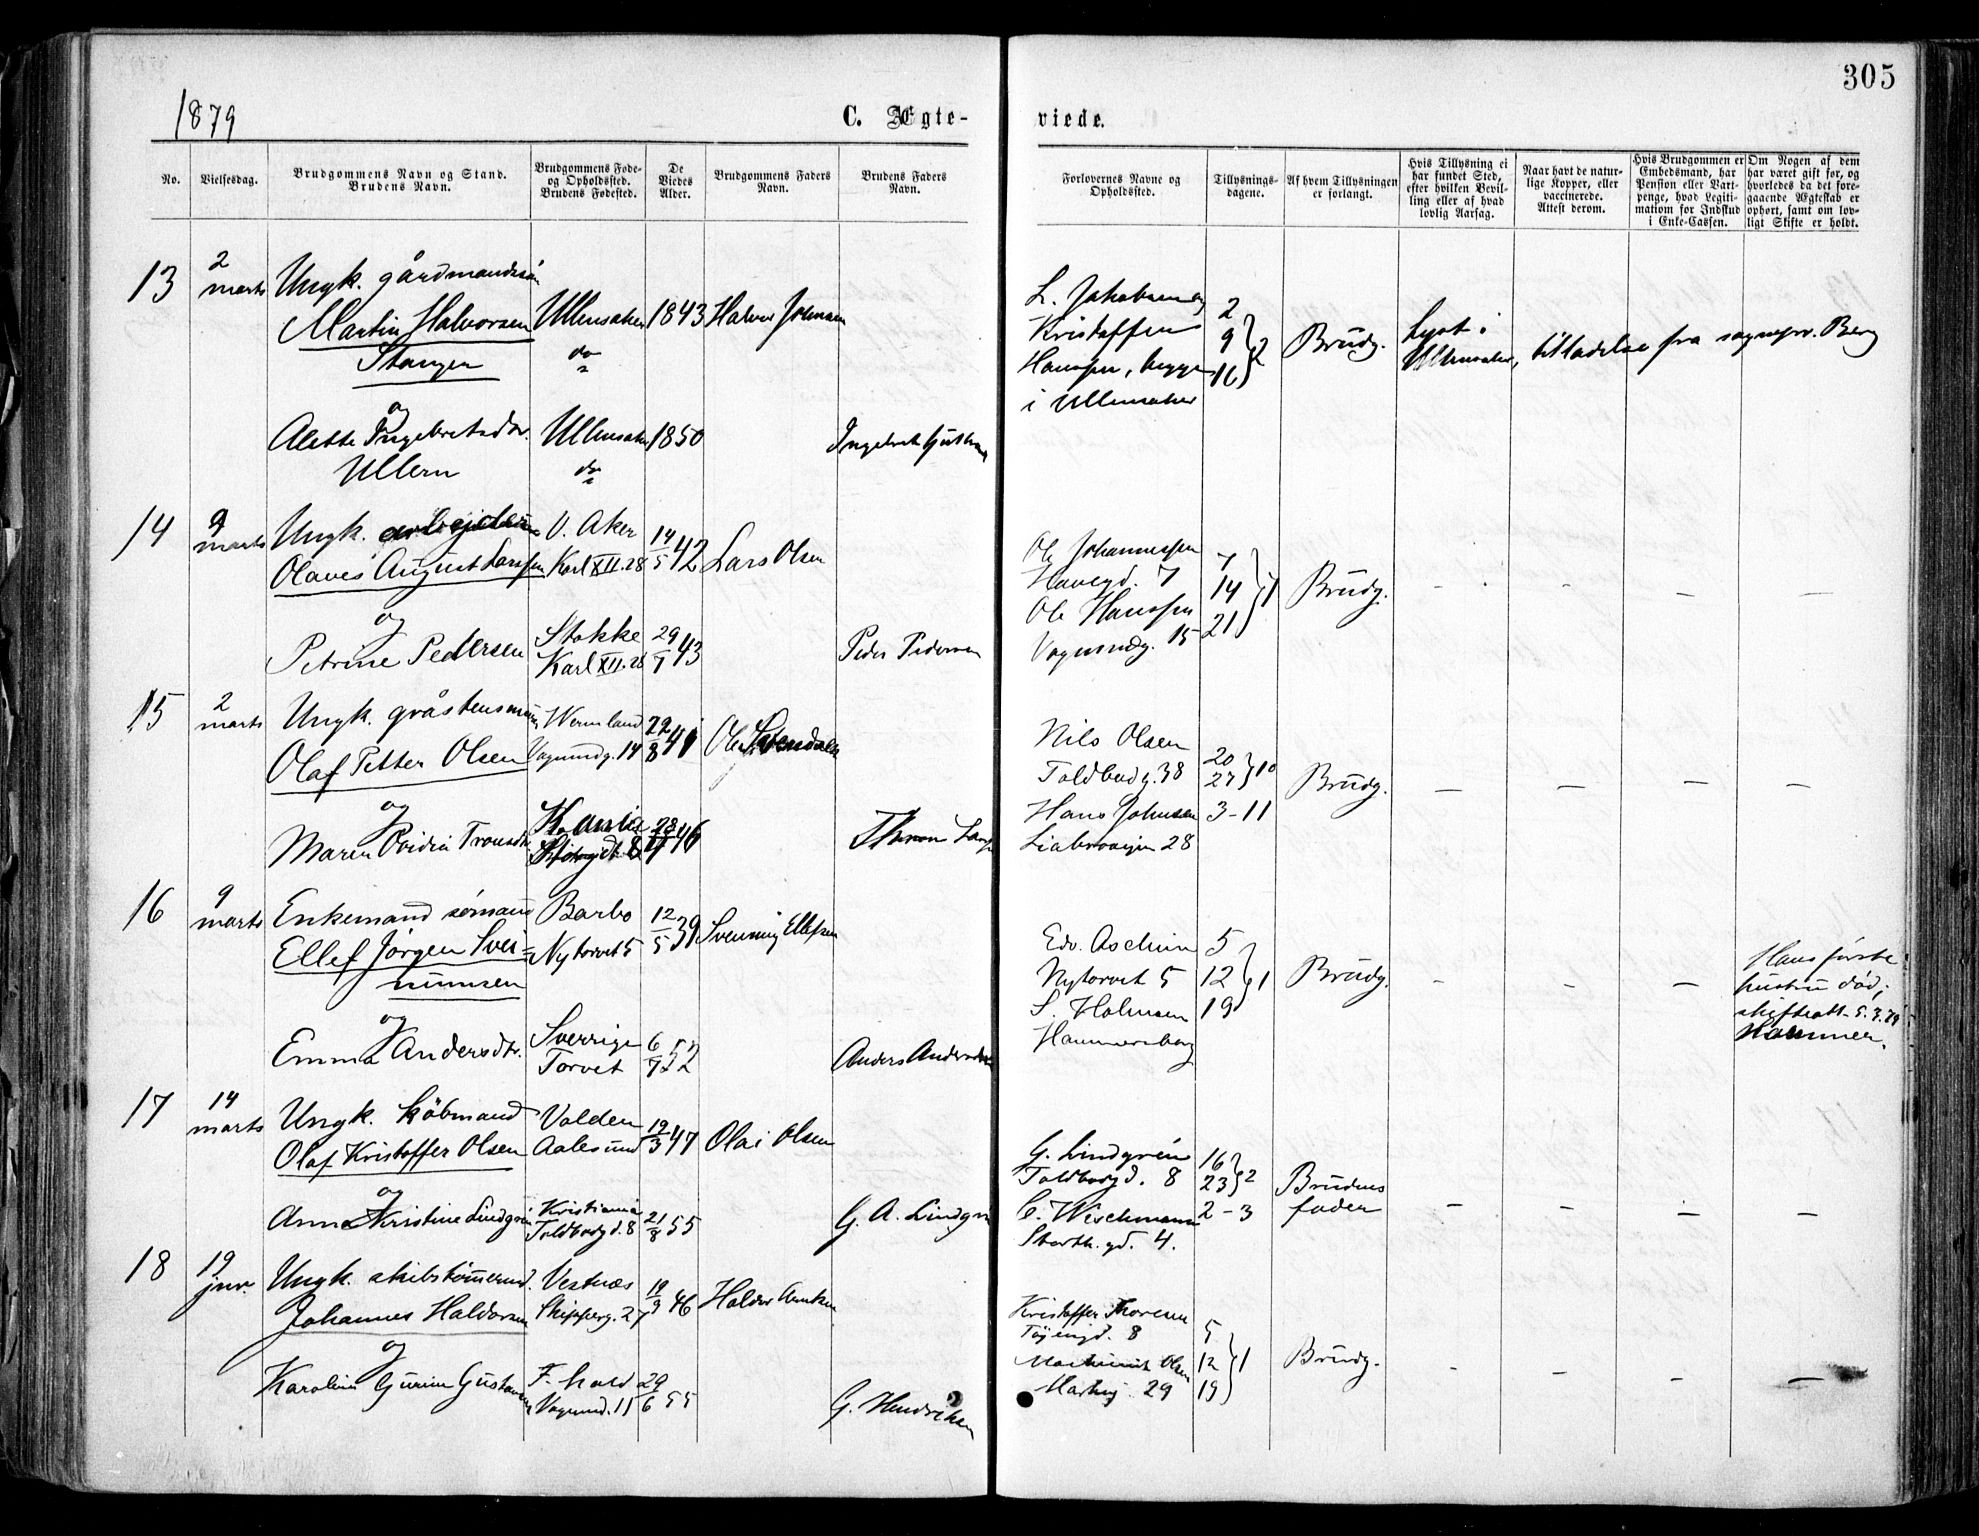 305
1879
C. Ægte-
viede.
No.
Vielsesdag.
Brudgommens Navn og Stand.
Brudens Navn.
Brudgommens Føde-
og Opholdsted.
Brudens Fødested.
De
Viedes
Alder.
Brudgommens Faders
Navn.
Brudens Faders
Navn.
Forlovernes Navne og
Opholdsted.
Tillysnings-
dagene.
Af hvem Tillysningen
er forlangt.
Hvis Tillysning ei
har fundet Sted,
efter hvilken Bevil-
ling eller af hvad
lovlig Aarsag.
Naar havt de natur-
lige Kopper, eller
vaccinerede.
Attest derom.
Hvis Brudgommen er
Embedsmand, har
Pension eller Vart-
penge, hvad Legiti-
mation for Indskud
i Enke-Cassen.
Om Nogen af dem
har været gift før, og
hvorledes da det fore-
gaaende Ægteskab er
ophørt, samt om lov-
ligt Skifte er holdt.
13
2
marts
Ungk. gårdmandssön
Martin Halvorsen
Stangen
Ullensaker
do
1843
Halvor Johnsen
og
Alette Ingebretsdtr.
Ullern
Ullensaker
do
1850
L. Jakobsen og
Kristoffer
Hanssen, begge
i Ullensaker
2
9
16
2
Brudg.
Lyst i
Ullensaker, tilladelse fra sognepr. Berg
14
9
marts
Ungk. arbejdsm
Olaves August Larssen
V. Aker
Karl XII. 28
14/5 42
Lars Olsen
og
Petrine Pedersen
Stokke
Karl XII. 28
29/7 43
Peder Pedersen
Ole Johannessen
Havegd. 7
Ole Hanssen
Vognmdg. 15
7
14
21
1
Brudg.
15
2
marts
Ungk. gråstensmur
Olaf Petter Olsen
Wermland
Vognmdg. 14
22/8 41
Ole
og
Maren Ovidia
28
46
Nils Olsen
Toldbodg. 38
Hans Johnsen
Liabrovejen 28
20
27
10
3-11
Brudg.
16
9
marts
Enkemand sömand
Ellef Jörgen Svei=
nunsen
Barbo
Nytorvet 5
12/5 39
Svenning Ellefsen
og
Emma Andersdtr.
Sverrige
Torvet
6/7 52
Anders Andersen
Edv. Aschim
Nytorvet 5
S. Holmsen
Hammersborg
5
12
19
1
Brudg.
Hans förste
hustru död;
skifteatt. 5.3.79
Hammer.
17
14
marts
Ungk. köbmand
Olaf Kristoffer Olsen
Volden
Aalesund
19/3 47
Olai Olsen
og
Anna Kristine Lindgrén
Kristiania
Toldbodgd. 8
21/8 55
G. A. Lindgrén
G. Lindgrén
Toldbodgd. 8
C. Wischmann
Storth. gd. 4.
16
23
2
2-3
Brudens
fader
18
19
jnr.
Ungk. skibstömermd.
Johannes Haldorsen
Vestnæs
Skipperg. 27
19/9 46
og
Karoline Gurine Gustavsen
F. hald
Vognmd. 11
29/6 55
G. Hendriksen
Kristoffer Thoresen
Töjengd. 8
Maskinist Olsen
29
5
12
19
1
Brudg.